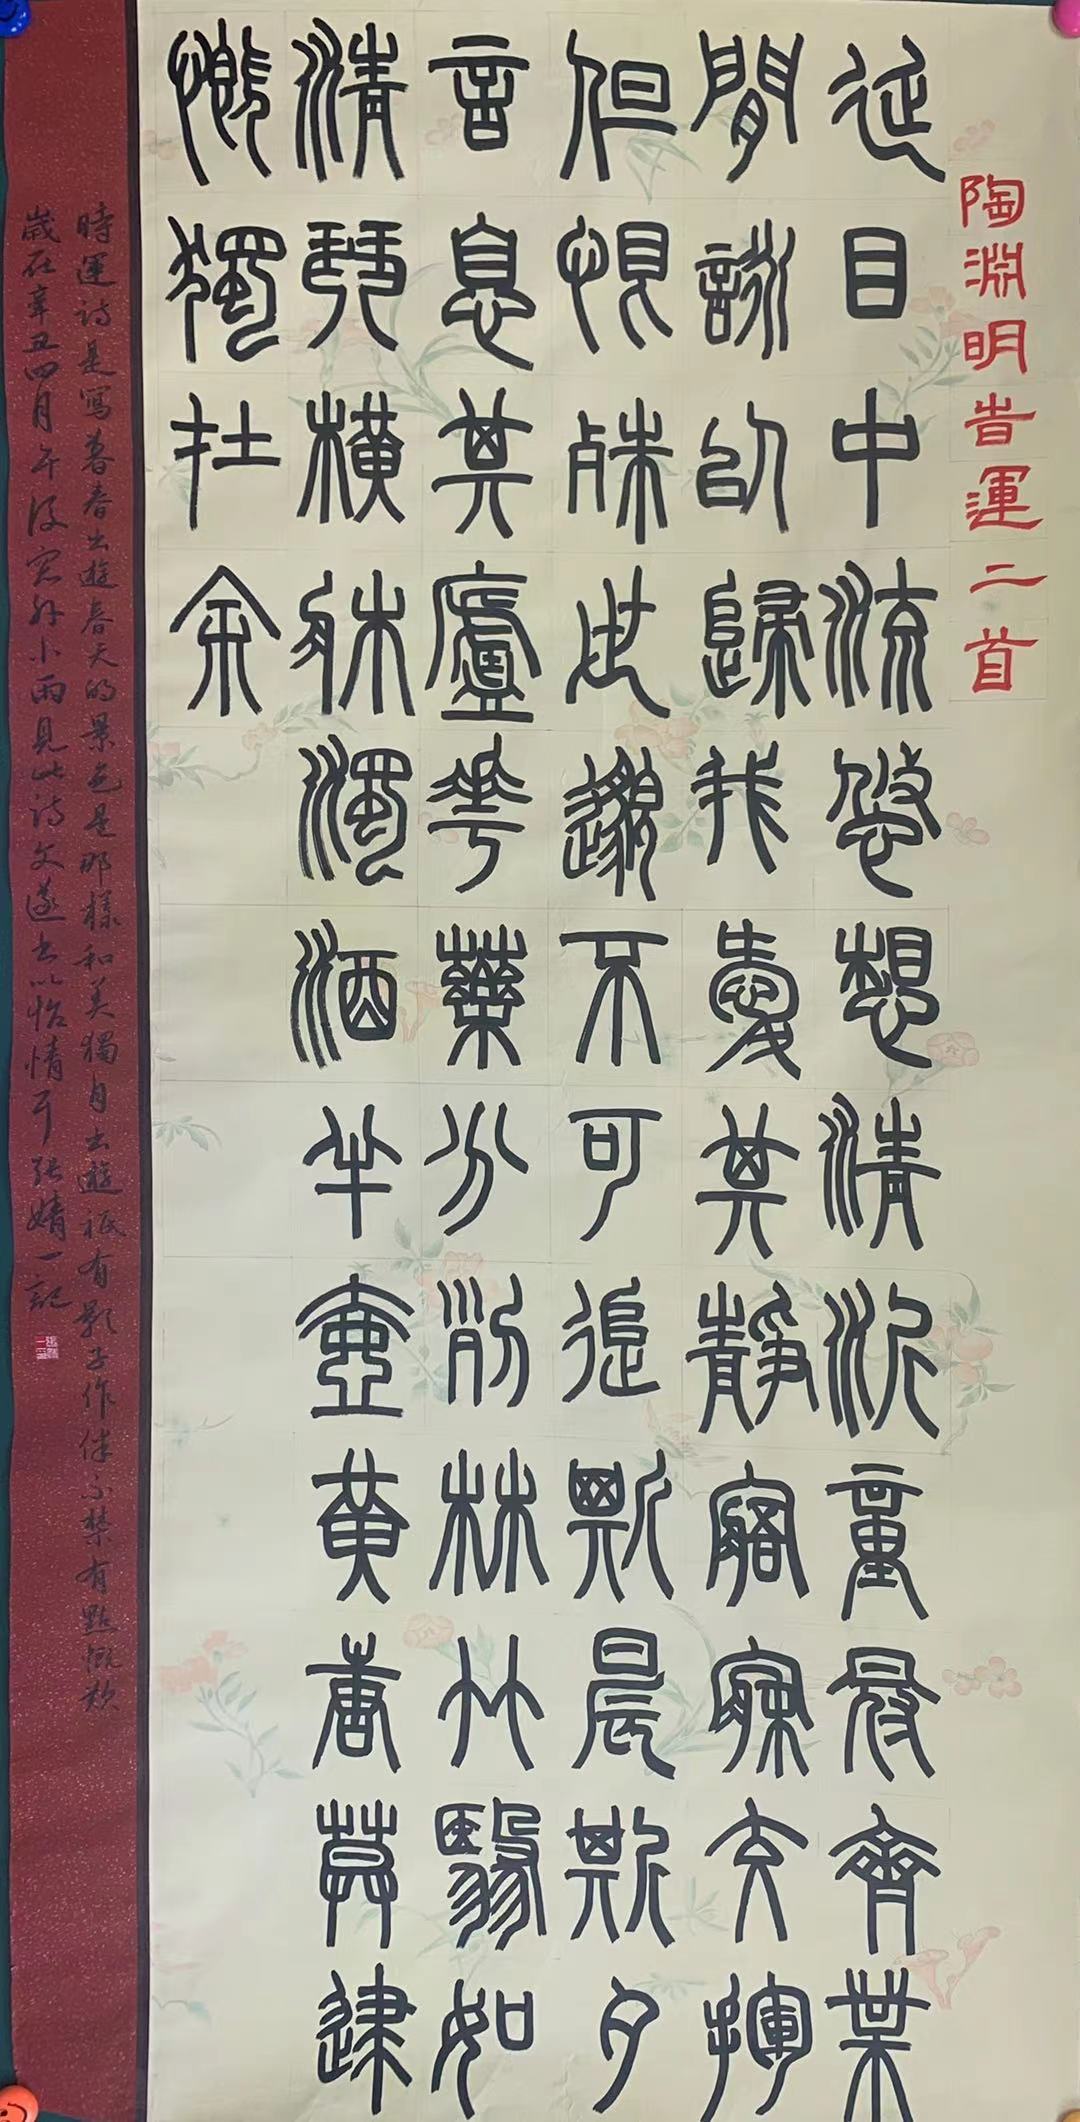 陶淵明旹運二首
延目中流悠想清沂童冠齊業
閒詠以歸我愛其靜寤寐交揮
但恨殊世邈不可追斯晨斯夕
言息其廬花藥分列林竹翳如
清琴橫牀濁酒半壺黃唐莫逮
慨獨在余
時運詩是寫暮春出遊春天的景色是那樣和美獨自出遊祇有影子作伴不禁有點慨歎
歲在辛丑四月午後窗外小雨見此詩文遂書以怡情耳張婧一記